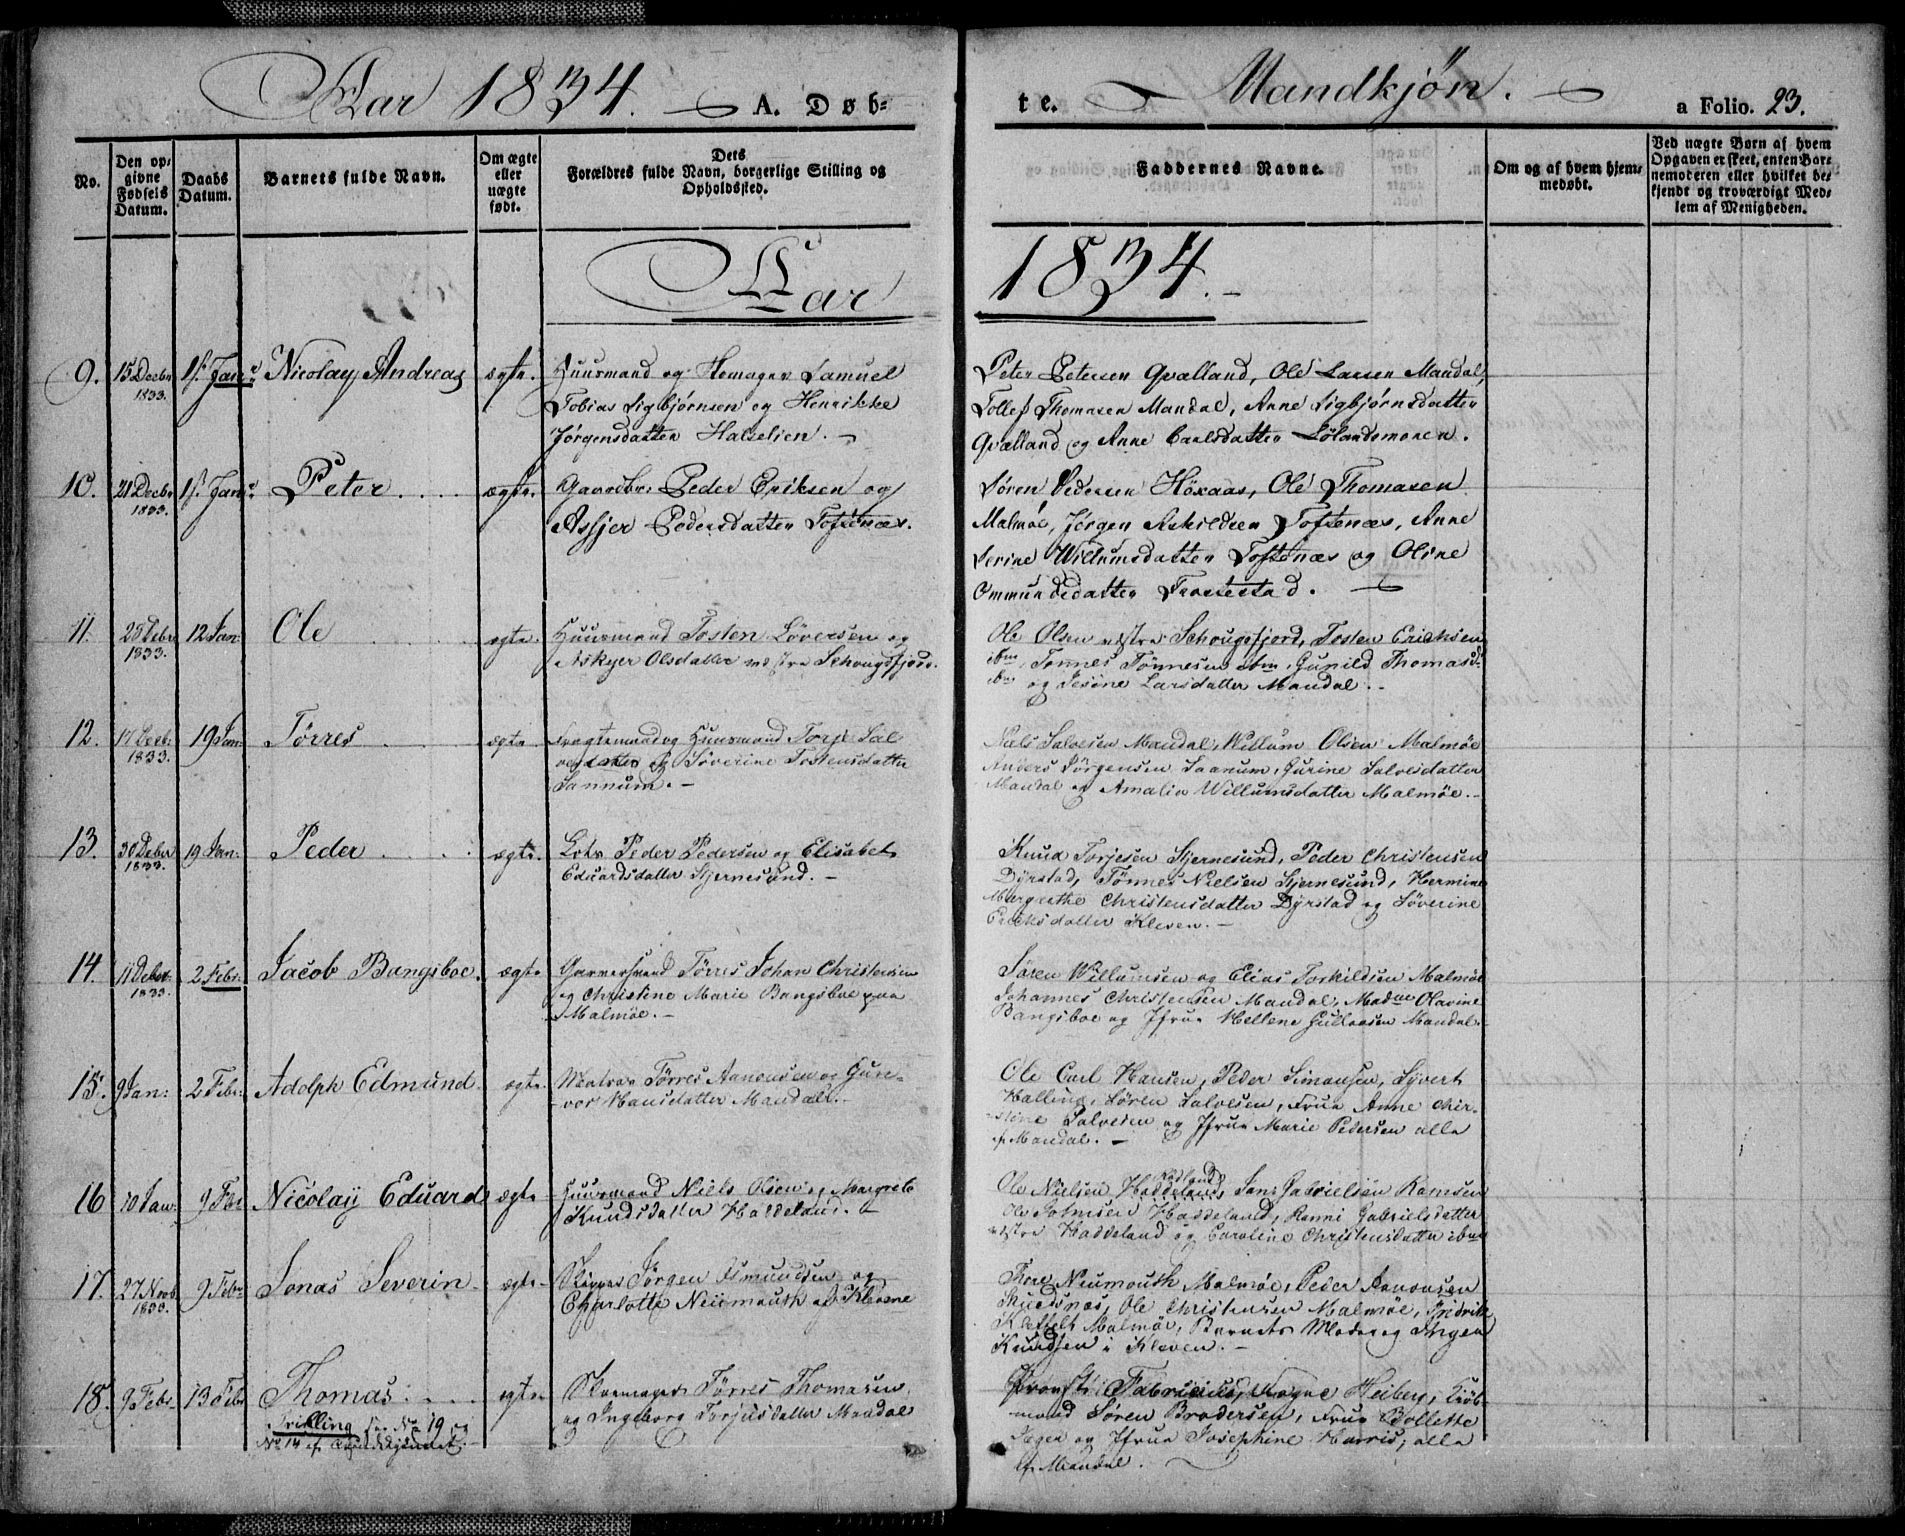 Aar 1834. A. Døb-
te. Mandkjøn. a Folio. 23.
No.
Den op-
givne
Fødsels
Datum.
Daabs
Datum.
Barnets fulde Navn.
Om ægte
eller
uægte
født.
Dets
Forældres fulde Navn, borgerlige Stilling og
Opholdssted.
Faddernes Navne.
Om og af hvem hjem-
medøbt.
Ved uægte Børn af hvem
Opgaven er skeet, enten Bar-
nemoderen eller hvilket be-
kjendt og troværdigt Med-
lem af Menigheden.
Aar 1834.
9. 15 Decbr 1833. 1ste Jan. Nicolay Andreas ægte.
Huusmand og Samuel
Tobias Sigbjørnsen og Henrikke
Jørgensdatter Halselien.
Peter Petersen Qvalland, Ole Larsen Mandal,
Tollef Thomasen Mandal, Anne Sigbjørnsdatter
Qvalland og Anne Carlsdatter Lølandsmonen.
10. 21 Decbr 1833. 1ste Jan. Peter. ægte.
Gaardbr: Peder Eriksen og
Assjer Pedersdatter Toftenæs.
Søren Pedersen Höxaas, Ole Thomasen
Malmöe, Jørgen Askildsen Toftenæs, Anne
Serine Willumsdatter Toftenæs og Oline
Ommundsdatter Frostestad.
11. 1833. 12 Jan: Ole ægte.
Huusmand Tosten Løversen og
Askjer Olsdatter vestre Schougsfjord.
Ole Olsen vestre Schougsfjord, Tosten Ericksen
ibm, Tønnes Tønnesen ibm, Gunild Thomasd:
ibm og Jesine Larsdatter Mandal.
12. 17 Decb: 1833. 19 Jan: Tørres ægte
Huusmand Torje Sal-
vesen og Søverine Tostensdatter
Sannum.
Niels Salvesen Mandal, Willum Olsen Malmöe
Anders Jörgensen Saanum, Gurine Salvesdatter
Mandal og Amalia Willumsdatter Malmöe.
13. 30 Decbr 1833. 19 Jan: Peder ægte.
Lots Peder Pedersen og Elisabet
Eduardsdatter Stjernesund.
Knud Torjesen Stjernesund, Peder Christensen
Dyrstad, Tønnes Nielsen Stjernesund, Hermine
Margrethe Christensdatter Dyrstad og Søverine
Ericksdatter Kleven.
14. 11 Decbr 1833. 2 Febr: Jacob Bangsboe. ægte
Garversvend Tørres Johan Christensen
og Christine Marie Bangsboe paa
Malmöe.
Søren Willumsen og Elias Torkildsen Malmöe
Johannes Christensen Mandal, Madme Olavine
Bangsboe og Jfrue Hellene Gulloesen Mandal.
15. 9 Jan: 2 Febr: Adolph Edmund. ægte.
Matros Tørres Aanonsen og Gun-
vor Hansdatter Mandal.
Ole Carl Hansen, Peder Simonsen, Syvert
Halling, Søren Salvesen, Frue Anne Chir-
stine Salvesen og Jfrue Marie Pedersen alle
af Mandal.
16 10 Jan: 9 Febr Nicolaij Eduard ægte
Huusmand Niels Olsen og Margrete
Knudsdatter Haddeland.
Ole Nielsen Haddeland, Jans Gabrielsen Ramsen
Ole Haddeland, Ranni Gabrielsdatter
vestre Haddeland og Caroline Christensdatter ibm
17. 27 Novb 1833. 9 Febr Jonas Severin. ægte.
Skipper Jørgen Asmundsen og
Charlotte Neumouth af Klevene
Thore Neumouth Malmöe, Peder Aanonsen
Skuesnæs, Ole Christensen Malmöe, Fredrikke
Malmöe, Barnets Moder og Inger
Knudsen i Kleven.
18. 9 Febr 13 Febr Thomas. ægte.
Trilling see No 19 og
No 14 af
Skomager Tørres Thomasen
og Ingeborg Torjusdatter Mandal
Provst Fabricius, Heiberg, Kiøb-
mand Søren Brodersen, Frue Bollette
og Jfrue Josephine Harris, alle
af Mandal.